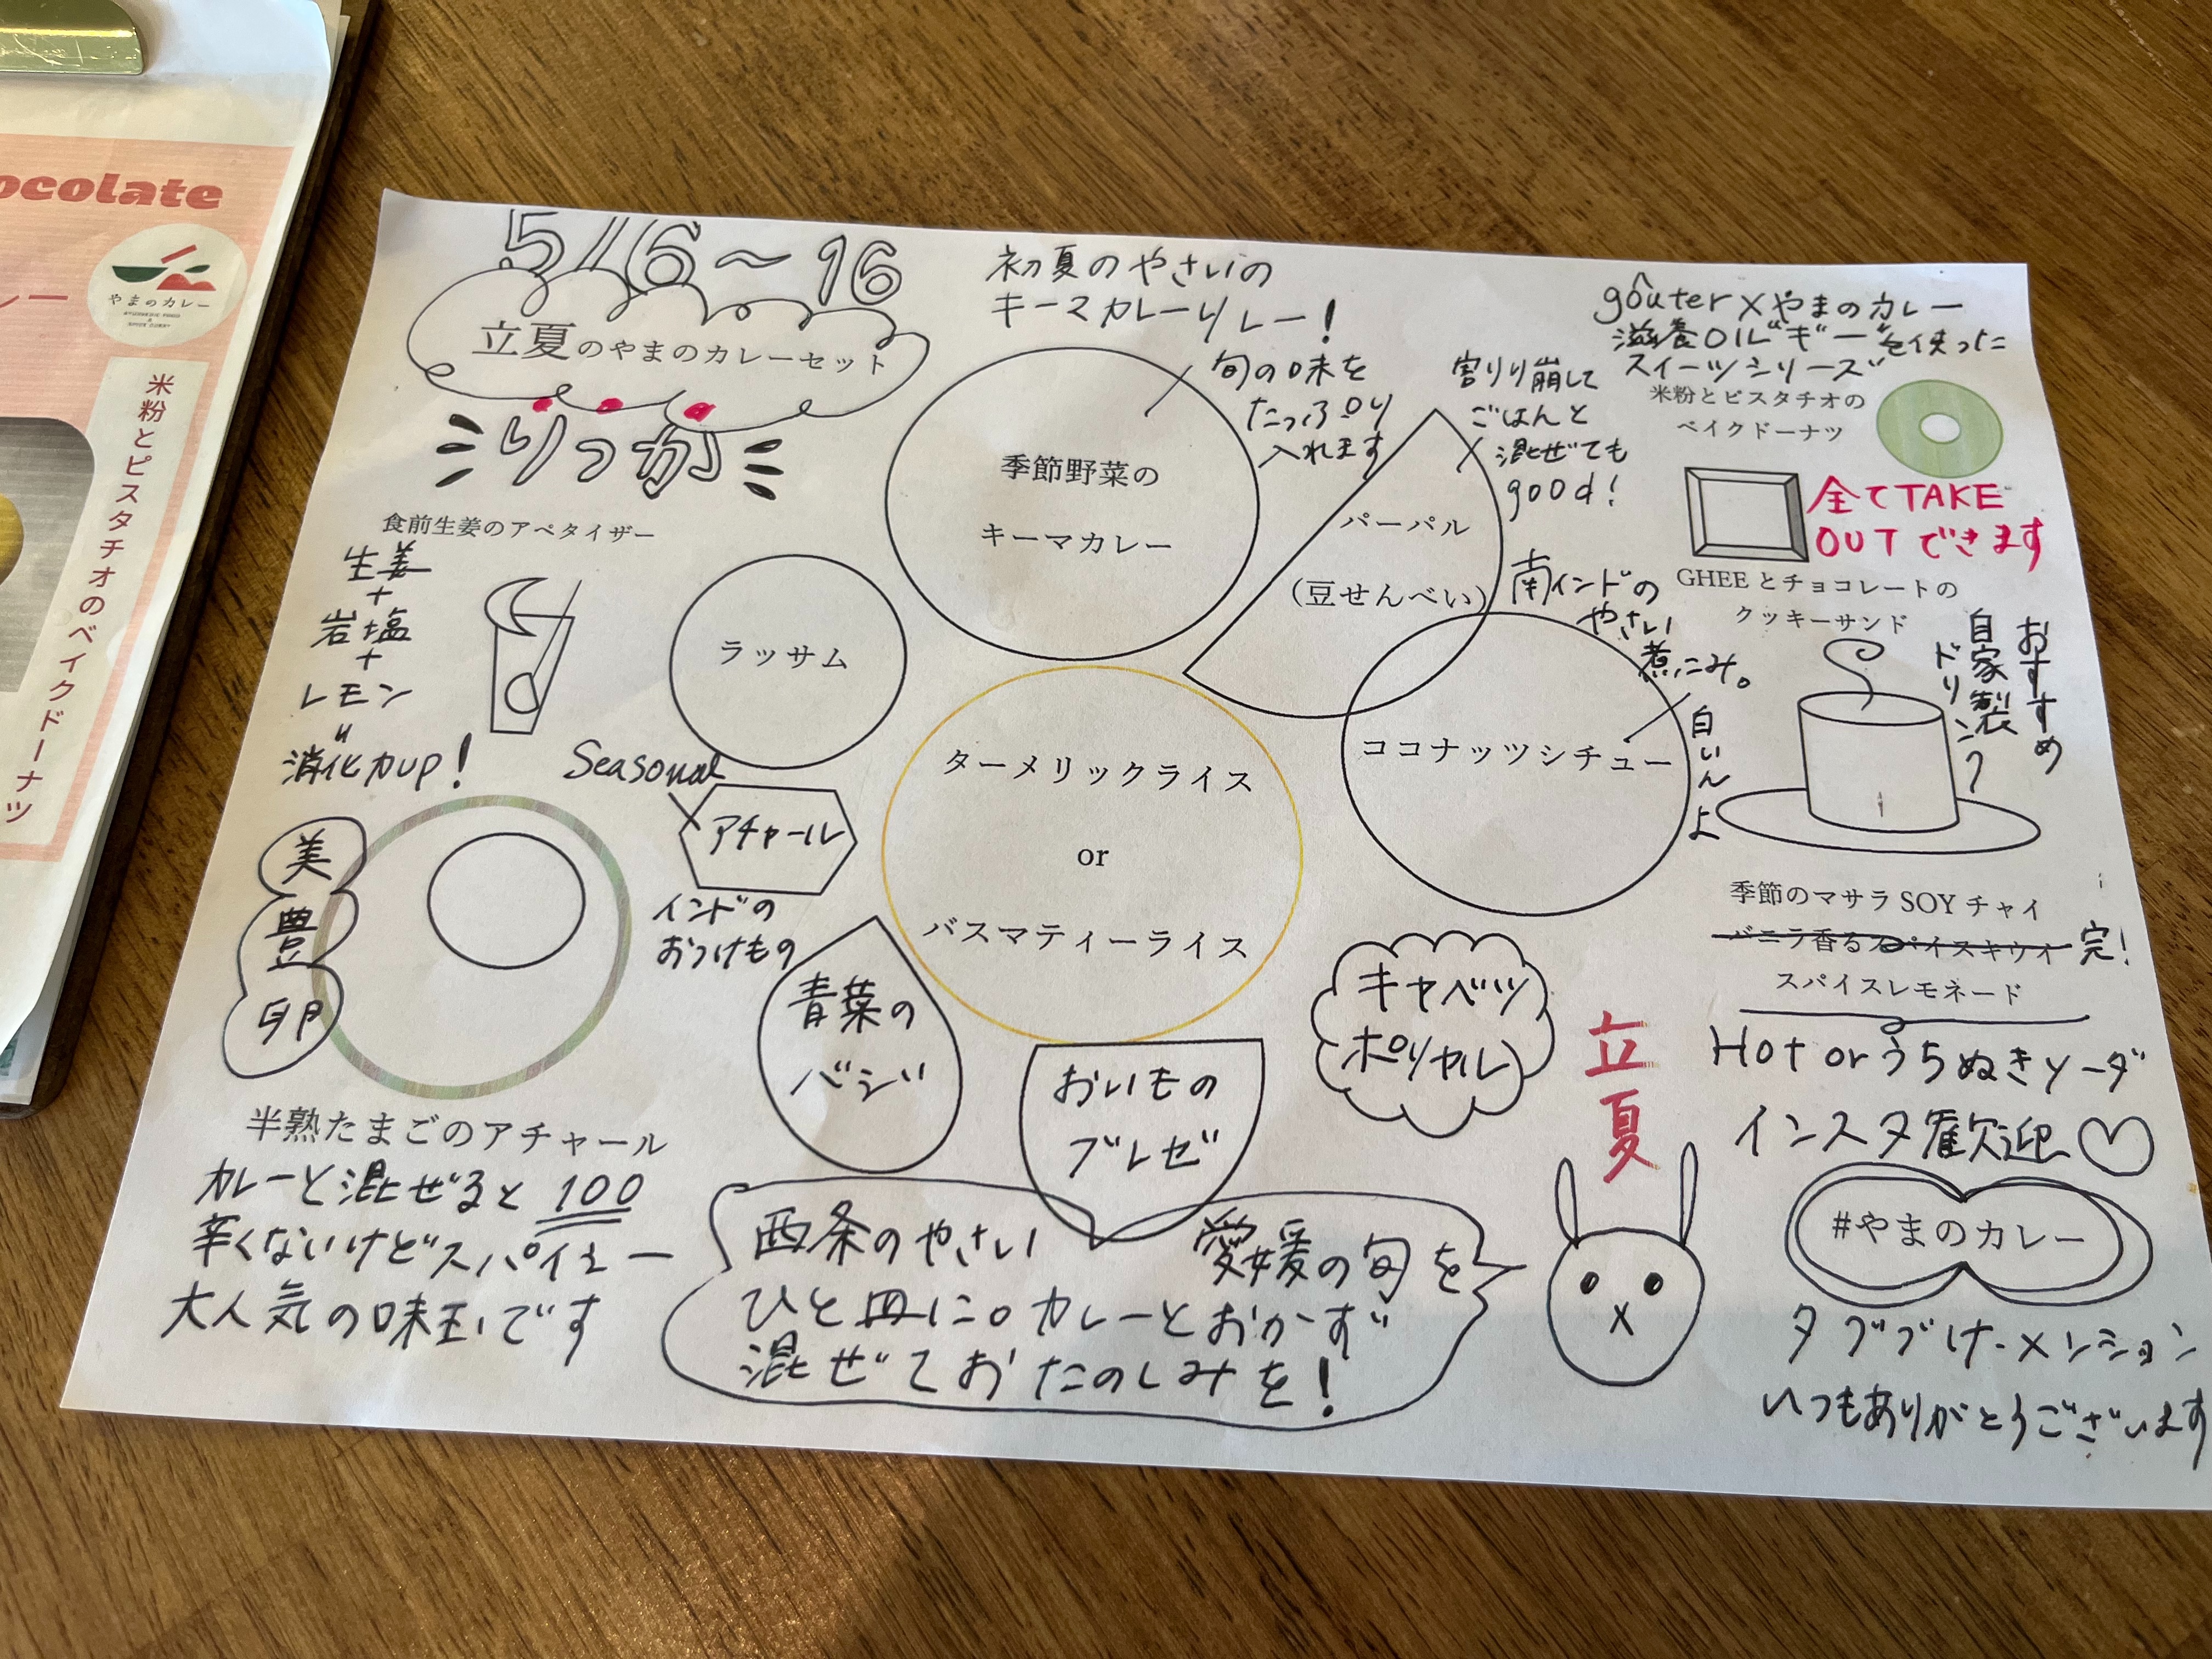 ocolate
やまのカレー
米粉とピスタチオのベイクドーナツ
5/6〜16
立夏のやまのカレーセット
りっか
初夏のやさいの
キーマカレーリレー!
旬の味を
たっぷり
入れます
季節野菜の
キーマカレー
割りり崩して
ごはんと
混ぜても
good!
パーパル
(豆せんべい)
goûter×やまのカレー
滋養OILギーを使った
スイーツシリーズ
米粉とピスタチオの
ベイクドーナツ
全てTAKE
OUTできます
GHEEとチョコレートの
クッキーサンド
食前生姜のアペタイザー
生姜
+
岩塩
+
レモン
〃
消化力up!
ラッサム
Seasonal
アチャール
インドの
おつけもの
ターメリックライス
or
バスマティーライス
南インドの
やさい
煮こみ。
白いんよ
ココナッツシチュー
おすすめ
自家製
ドリンク
季節のマサラSOYチャイ
バニラ香るスパイスキウイ 完!
スパイスレモネード
Hot or うちぬきソーダ
インスタ歓迎♡
#やまのカレー
タグづけ・メンション
いつもありがとうございます
美
豊
卵
半熟たまごのアチャール
カレーと混ぜると100
辛くないけどスパイシー
大人気の味玉です
青葉の
バジ
おいもの
ブレゼ
キャベツ
ポリヤル
立夏
西条のやさい 愛媛の旬を
ひと皿に。カレーとおかず
混ぜておたのしみを!